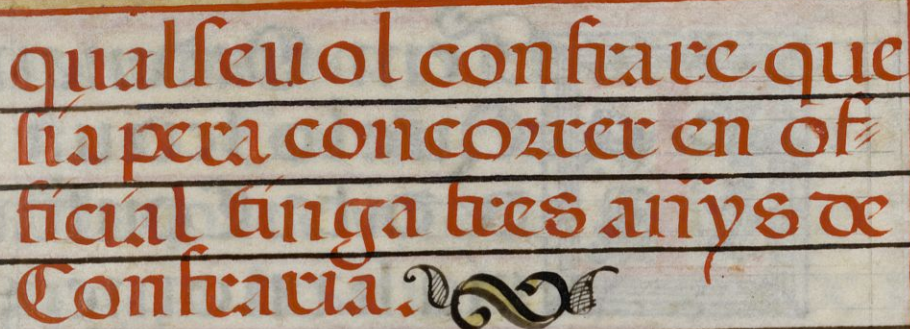 qualseuol confrare que
sia pera concorrer en of=
ficial tinga tres anys de
Confraria.